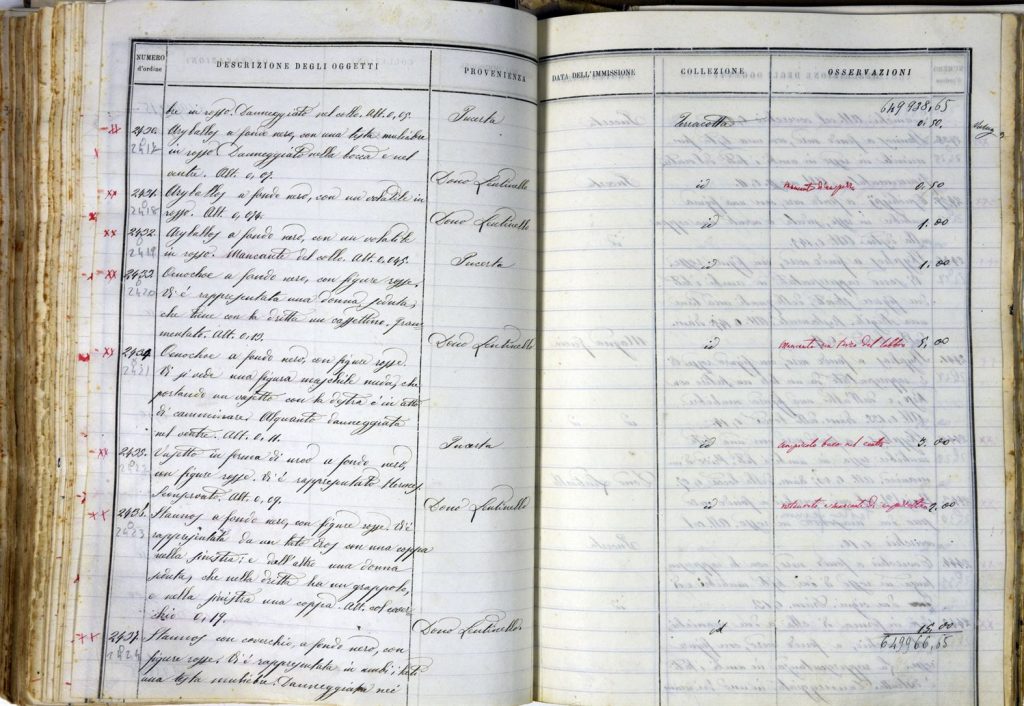 NUMERO
d'ordine
DESCRIZIONE DEGLI OGGETTI
PROVENIENZA
DATA DELL'IMMISSIONE
COLLEZIONE
OSSERVAZIONI
649938,65
tre in rosso. Danneggiato nel collo. Alt. 0,05. Incerta Terracotta 0.50
2430. Aryballos a fondo nero, con una testa muliebre
2417 in rosso. Danneggiato nella bocca e nel
ventre. Alt. 0,07. Dono Lentinello id 0,50
2431. Aryballos a fondo nero, con un volatile in
2418 rosso. Alt. 0,074. Dono Lentinello id 1.00
2432. Aryballos a fondo nero, con un volatile
2419 in rosso. Mancante del collo. Alt. 0,045. Incerta id 1.00
2433. Oenochoe a fondo nero, con figure rosse.
2420 Vi è rappresentata una donna seduta,
che tiene con la dritta un cassettino. Fram
mentato. Alt. 0,13. Dono Lentinello id 5,00
2434. Oenochoe a fondo nero, con figure rosse.
2421 Vi si vede una figura maschile nuda, che
portando un vasetto con la destra è in atto
di camminare. Alquanto danneggiata
nel ventre. Alt. 0,11. Incerta id 3.00
2435. Vasetto in forma di urna a fondo nero,
2422 con figure rosse. Vi è rappresentato Hermes
Alt. 0,09. Dono Lentinello id 2.00
2436. Stamnos a fondo nero, con figure rosse. Vi è
2423 rappresentata da un lato Eros con una coppa
nella sinistra; e dall'altro una donna
seduta, che nella dritta ha un grappolo,
e nella sinistra una coppa. Alt. col cover
chio 0,19. Dono Lentinello id 15,00
2437. Stamnos con coverchio, a fondo nero, con
2424 figure rosse. Vi è rappresentata in ambi i lati
una testa muliebre. Danneggiata nei
649966,65